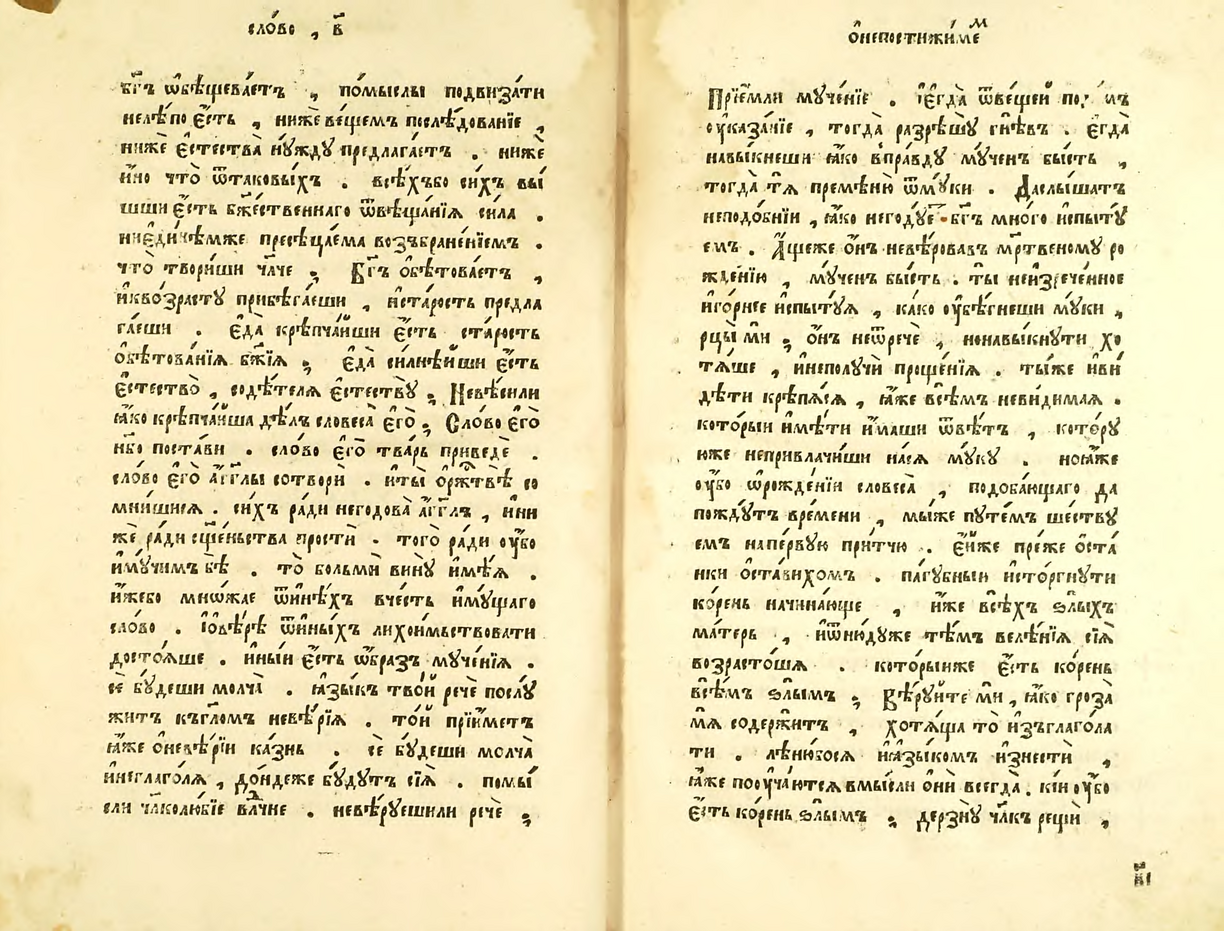 сло́во , в҃
бг҃ъ ѡбѣщева́етъ , по́мыслы подвиза́ти
нелѣ́по є҆́сть , нижѐ ве́щемъ послѣ́дованїе ,
нижѐ є҆стества̀ нꙋ́ждꙋ предлага́етъ . нижѐ
и҆́но что̀ ѿтаковы́хъ . всѣ́хъбо си́хъ вы́
шши є҆́сть бж҃е́ственнаго ѿвѣща́нїѧ си́ла .
ниеди́нѣмже пресѣца́ема возъбране́нїемъ .
что̀ твори́ши чл҃че ; Бг҃ъ ѻ҆бѣтова́етъ ,
и҆квозра́стꙋ прибѣга́еши , и҆ста́рость предла
га́еши . є҆да̀ крѣпча́йши є҆́сть ста́рость
ѻ҆бѣтова́нїѧ бж҃їѧ ; є҆да̀ силнѣ́йши є҆́сть
є҆стество̀ , содѣ́телѧ є҆стествꙋ̀ ; Невѣ́сили
ꙗ҆́ко крѣпча́йша дѣ́лъ словеса̀ є҆го̀ ; Сло́во є҆го̀
нб҃о поста́ви . сло́во є҆го̀ тва́рь приведѐ .
сло́во є҆го̀ а҆́гг҃лы сотворѝ . и҆ты̀ ѻ҆рж҃твѣ̀ со
мни́шисѧ . си́хъ ра́ди негодова̀ а҆́гг҃лъ , и҆ни
жѐ ра́ди сщ҃е́ньства простѝ . того̀ ра́ди ᲂу҆́бо
и҆мꙋ́чимъ бѣ̀ . то̀ больмѝ винꙋ̀ и҆мѣ́ѧ .
и҆́жебо мно́жае ѿи҆нѣ́хъ вче́сть и҆мꙋ́щаго
сло́во . І҆овѣ́рѣ ѿи҆ны́хъ лихои́мьствовати
досто́ѧше . и҆ны́и є҆́сть ѡ҆́бразъ мꙋче́нїѧ .
сѐ бꙋ́деши молча̀ . ꙗ҆зы́къ тво́й речѐ послꙋ́
житъ къгл҃омъ невѣ́рїѧ . то́й прїи́метъ
ꙗ҆́же ѻ҆невѣ́рїи ка́знь . сѐ бꙋ́деши молча̀
и҆неглаго́лѧ , до́ндеже бꙋ́дꙋтъ сїѧ̀ . помы́
сли чл҃колю́бїе влⷣчне . невѣ́рꙋешили речѐ ;
ѻ҆непостижи́меⷨ
Прїе́мли мꙋче́нїе . І҆є҆гда̀ ѿве́щей
ᲂу҆каза́нїе , тогда̀ разрѣшꙋ̀ гнѣ́въ . є҆гда̀
навы́кнеши ꙗ҆́ко впра́вдꙋ мꙋ́ченъ бы́сть ,
тогда̀ тѧ̀ премѣню̀ ѿмꙋ́ки . Даслы́шатъ
неподо́бнїи , ꙗ҆́ко негодꙋ́еⷮ бг҃ъ мно́го и҆спытꙋ́
емъ . А҆́щеже ѻ҆́нъ невѣ́ровавъ мр҃твеномꙋ ро
жде́нїю , мꙋ́ченъ бы́сть . ты̀ неизрече́нное
и҆го́рнее и҆спытꙋ́ѧ , ка́ко ᲂу҆бѣ́гнеши мꙋ́ки ,
рцы́ ми ; ѻ҆́нъ неѿречѐ , ненавы́кнꙋти хо
тѧ́ше , и҆неполꙋчѝ проще́нїѧ . ты́же и҆ви́
дѣти крѣпѧ́сѧ , ꙗ҆́же всѣ́мъ неви́димаѧ .
кото́рыи и҆мѣ́ти и҆́маши ѿвѣ́тъ , кото́рꙋ
юже непривлачи́ши на́сѧ мꙋ́кꙋ . ноꙗ҆́же
ᲂу҆́бо ѡ҆рожде́нїи словеса̀ , подоба́ющаго да
пождꙋ́тъ вре́мени , мы́же пꙋте́мъ ше́ствꙋ
емъ напе́рвꙋю при́тчю . є҆ѝже пре́же ѻ҆ста́
нки ѻ҆ста́вихомъ . па́гꙋбныи и҆сто́ргнꙋти
ко́рень начина́юще , и҆́же всѣ́хъ ѕлы́хъ
ма́терь , и҆ѿню́дꙋже тѣ́мъ велѣ́нїѧ сїѧ̀
возрасто́шѧ . кото́рыиже є҆́сть ко́рень
всѣ́мъ ѕлы́мъ ; Вѣ́рꙋйте мѝ , ꙗ҆́ко гроза̀
мѧ̀ содержи́тъ , хотѧ́ща то̀ и҆зъглаго́ла
ти . лѣню́босѧ и҆ꙗ҆зы́комъ и҆знестѝ ,
ꙗ҆́же поᲂуча́ютсѧ вмы́сли ѻ҆нѝ всегда̀ . кі́и ᲂу҆́бо
є҆́сть ко́рень ѕлы́мъ ; дерзнꙋ̀ чл҃къ рещѝ ,
н҃і